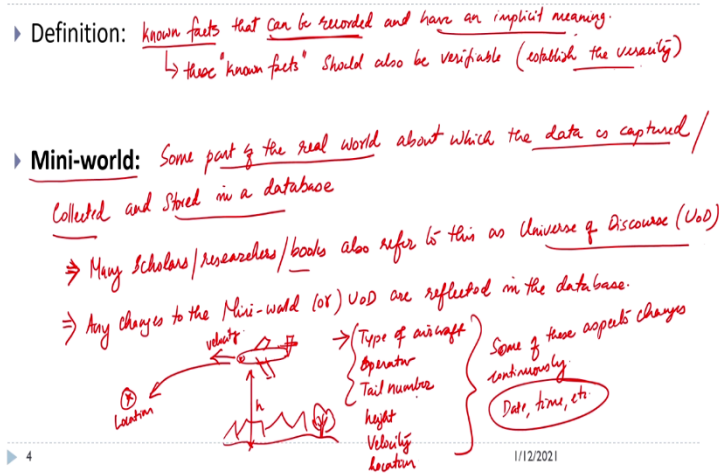 Definition: known facts that can be recorded and have an implicit meaning.
↳ these "known facts" should also be verifiable (establish the veracity)
Mini-world: Some part of the real world about which the data is captured/
Collected and Stored in a database
⇒ Many Scholars/researchers/books also refer to this as Universe of Discourse (UoD)
⇒ Any changes to the Mini-world (or) UoD are reflected in the database.
velocity
h
Location
→ Type of aircraft
Operator
Tail number
height
Velocity
Location
Some of these aspects changes
continuously.
Date, time, etc.
4
1/12/2021